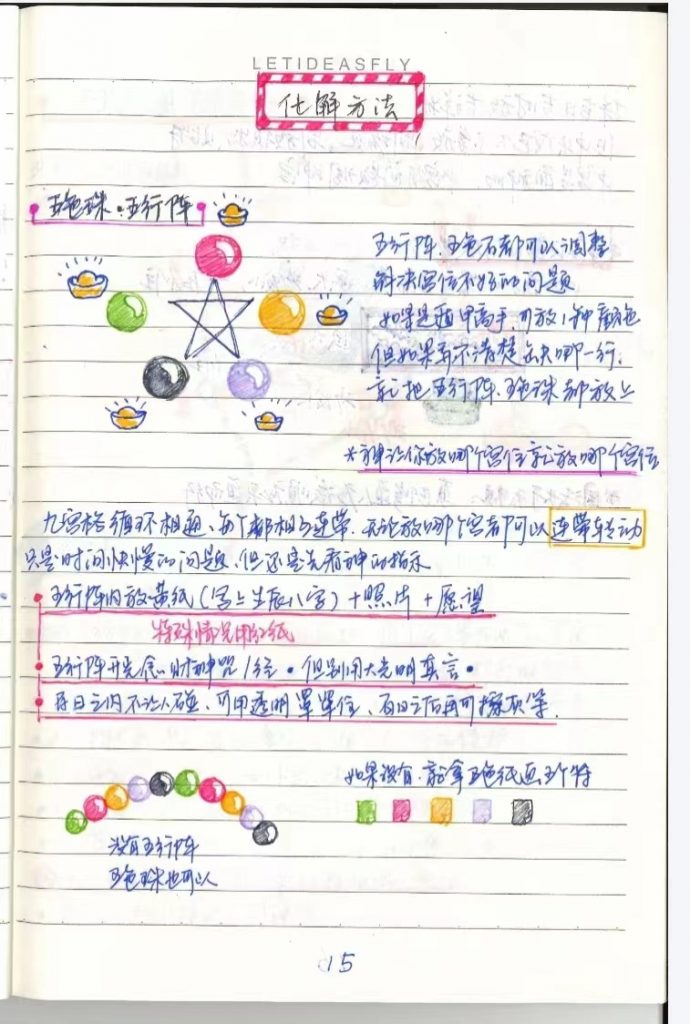 LETIDEASFLY
化解方法
五色珠·五行阵
五行阵.五色石都可以调整
解决宫位不好的问题
如果是遁甲高手,可放1种颜色
但如果弄不清楚缺哪一行,
就把五行阵.五色珠都放上
*神让你放哪个宫位就放哪个宫位
九宫格循环相通,每个都相互连带.无论放哪个宫都可以连带转动
只是时间快慢的问题,但还是先看神的指示
五行阵内放黄纸(写上生辰八字)+照片+愿望
特殊情况用红纸
五行阵开光念:财神咒/经·但别用大光明真言·
百日之内不让人碰、可用透明罩罩住、百日之后再可擦灰等.
如果没有.就拿五色纸画五个符
没有五行阵
五色珠也可以
15